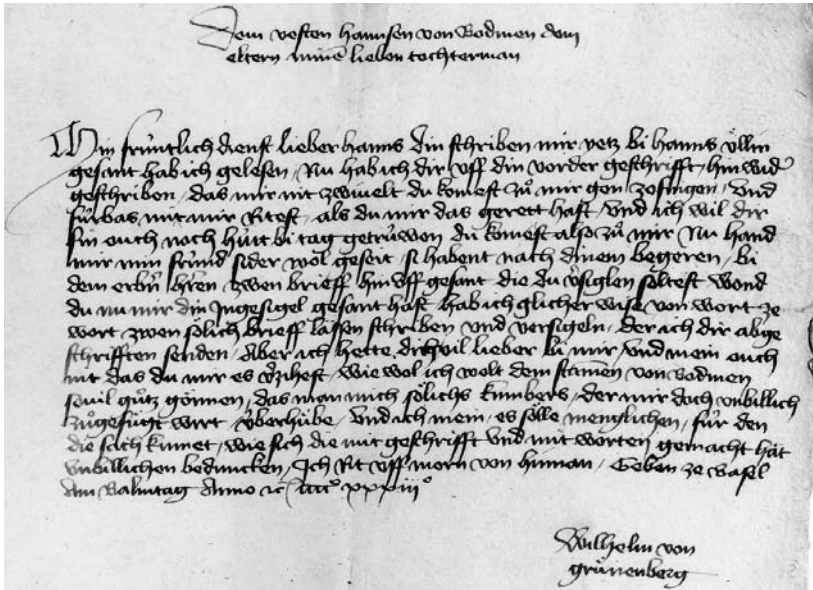 Dem vesten hannsen von Bodmen dem
eltern minē lieben tochterman
Min frúntlich dienst lieber hanns din schriben mir yetz bi hanns úllin
gesant hab ich gelesen / Nu hab ich dir vff din vorder geschrifft / hinwider
geschriben / das mir nit zwiuelt du komest zů mir gen zofingen / vnd
fúrbas mit mir Ritest / als du mir das gerett hast / vnd ich wil dir
sin ouch noch hútt bi tag getrúwen du komest also zů mir Nu hand
mir min frúnd sider wol geseit / si habent nach dinem begeren / bi
dem erbn̄ hren / zwen brieff hin vff gesant die du v̊siglen soltest wond
du nu mir din Ingesigel gesant hast / hab ich glicher wise von wort ze
wort zwen solich brieff lassen schriben vnd versigeln / der ich dir abge
schrifften senden / Aber ich hette dich vil lieber bi mir / vnd mein ouch
nit das du mir es v̊zihest / wie wol ich wolt dem stamen von Bodmen
souil gůtz gönnen / das man mich sölichs kumbers / der mir doch vnbillich
zůgefúgt wirt / v̊berhúbe / vnd ich mein / es sölle menglichen / fúr den
die sach kumet / wie sich die mit geschrifft vnd mit worten gemacht hät
vnbillichen beduncken / Ich Rit vff morn von hinnan / Geben ze Basel
Am Balmtag Anno
Wilhelm von
grúnenberg